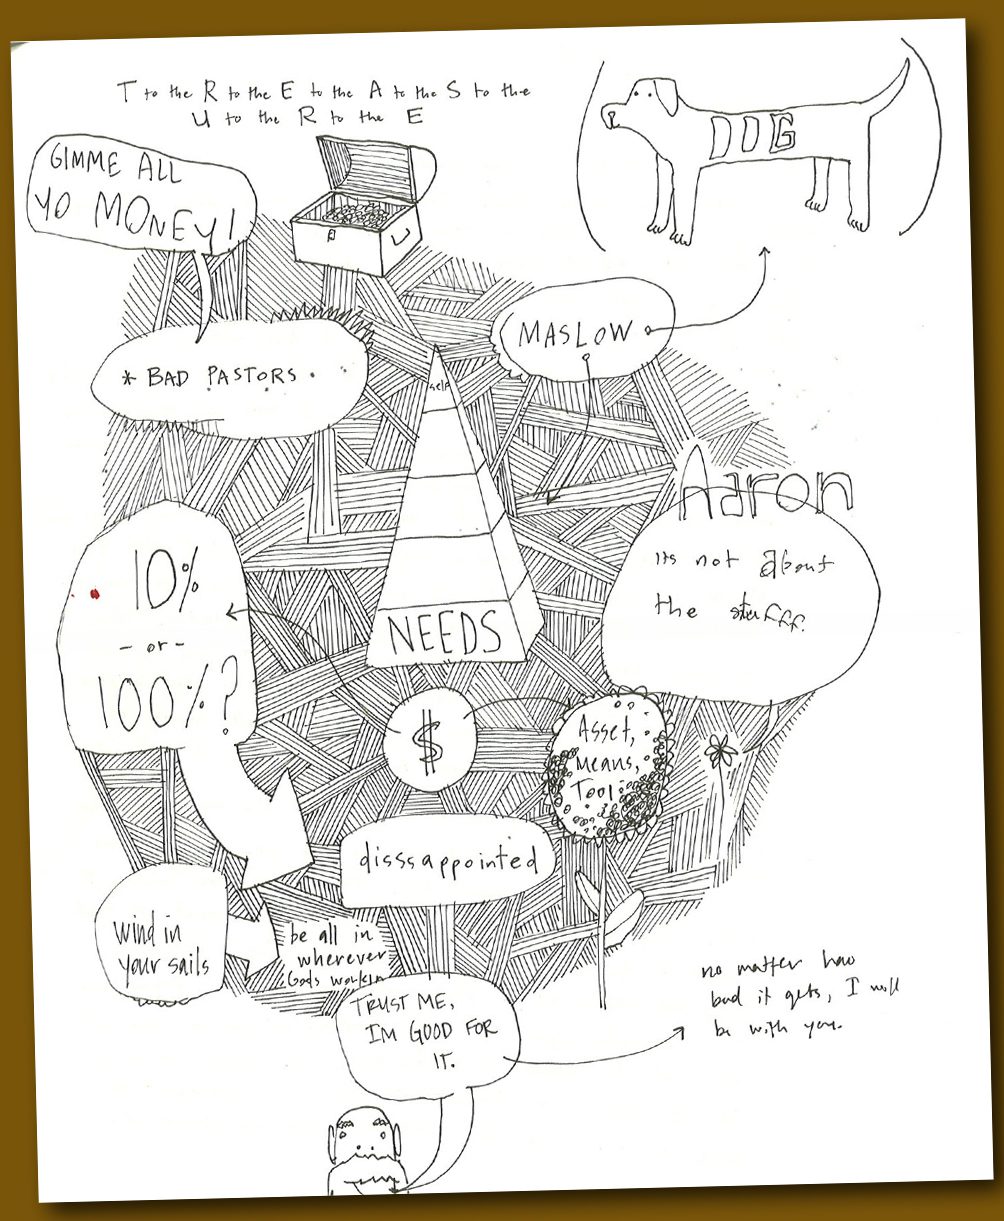 T to the R to the E to the A to the S to the
U to the R to the E
DOG
GIMME ALL
YO MONEY!
MASLOW
* BAD PASTORS.
self
Aaron
its not about
the stufff.
10%
- or -
100%?
NEEDS
$
Asset,
Means,
Tool
disssappointed
wind in
your sails
be all in
wherever
Gods workin
TRUST ME,
IM GOOD FOR
IT.
no matter how
bad it gets, I will
be with you.